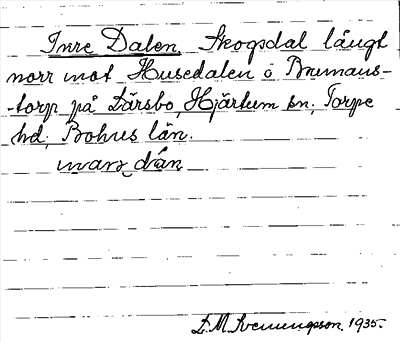 Inre Dalen, Skogsdal långt
norr mot Husedalen o Brumans-
-torp på Lärsbo, Hjärtum sn, Torpe
hd, Bohus län.
dán
D. M. Svenungsson. 1935.